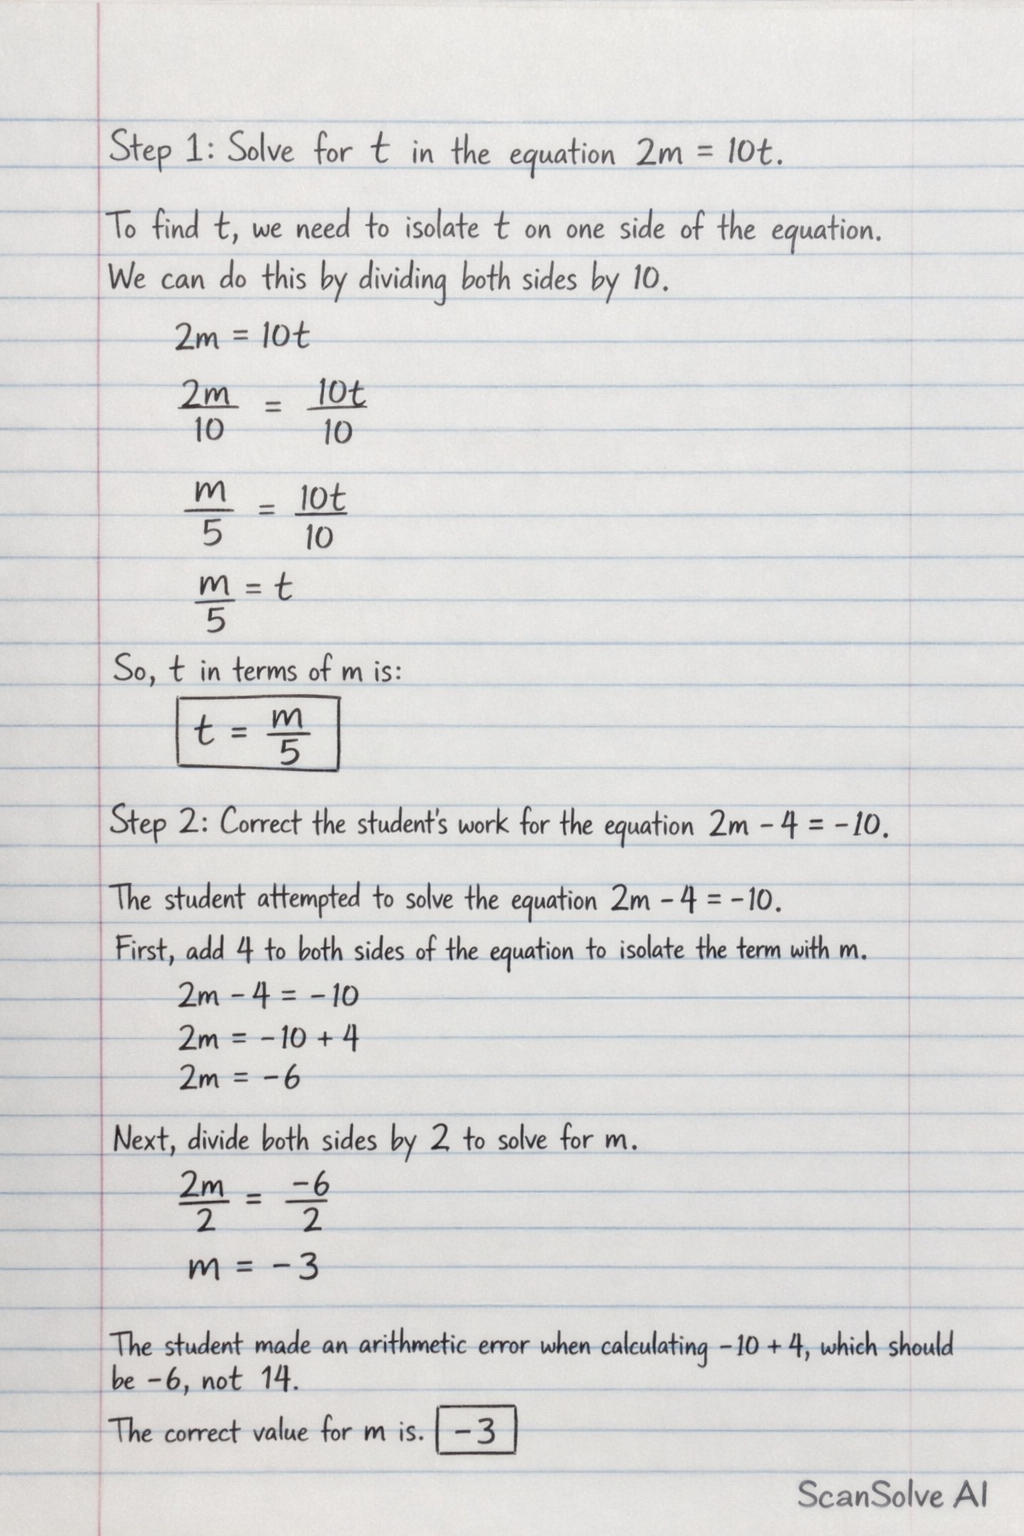 Step 1: Solve for t in the equation 2m = 10t.
To find t, we need to isolate t on one side of the equation.
We can do this by dividing both sides by 10.
2m = 10t
2m/10 = 10t/10
m/5 = 10t/10
m/5 = t
So, t in terms of m is:
t = m/5
Step 2: Correct the student's work for the equation 2m - 4 = -10.
The student attempted to solve the equation 2m - 4 = -10.
First, add 4 to both sides of the equation to isolate the term with m.
2m - 4 = -10
2m = -10 + 4
2m = -6
Next, divide both sides by 2 to solve for m.
2m/2 = -6/2
m = -3
The student made an arithmetic error when calculating -10 + 4, which should
be -6, not 14.
The correct value for m is. -3
ScanSolve AI